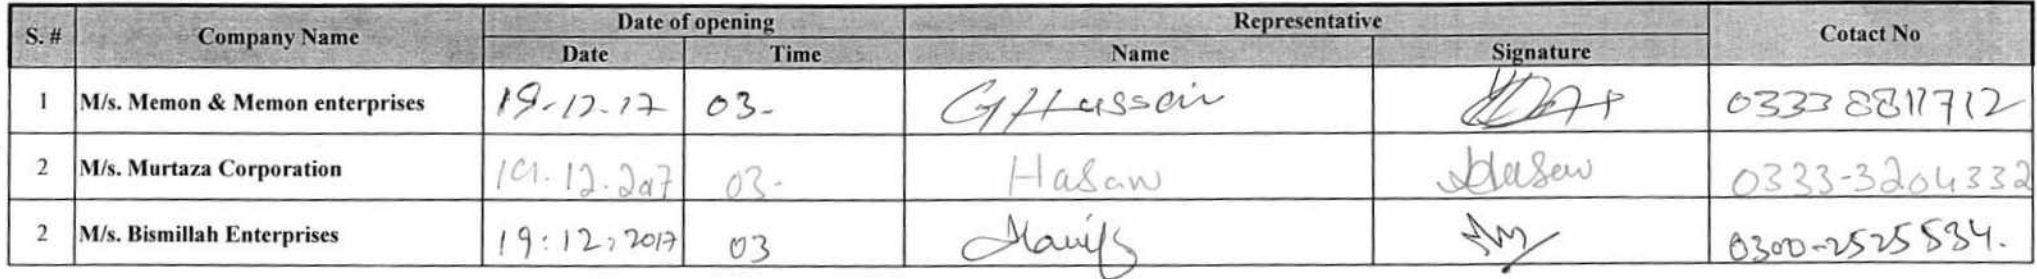 S. # Company Name Date of opening Representative Cotact No
Date Time Name Signature
1 M/s. Memon & Memon enterprises 19-12-17 03- G Hussain 0333 8811712
2 M/s. Murtaza Corporation 19.12.2017 03- Hasan Hasan 0333-3204332
2 M/s. Bismillah Enterprises 19:12:2017 03 Hanif 0300-2525534.